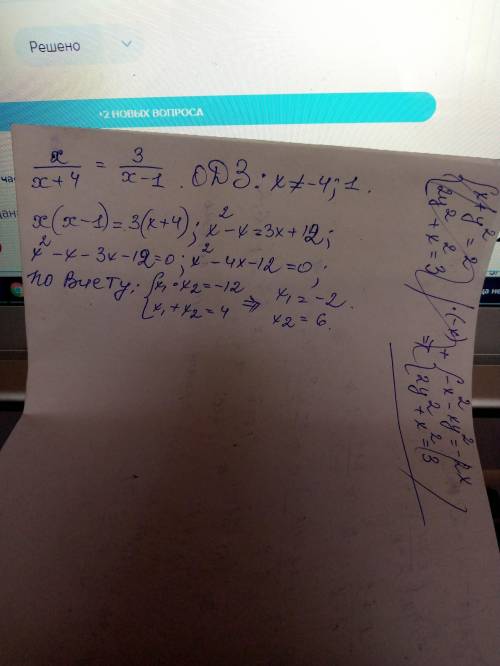 Решено
+2 НОВЫХ ВОПРОСА
x/(x+4) = 3/(x-1). ОДЗ: x≠-4; 1.
x(x-1)=3(x+4); x²-x=3x+12;
x²-x-3x-12=0; x²-4x-12=0;
по Виету: {x₁·x₂=-12
{x₁+x₂=4 ⇒ x₁=-2.
x₂=6.
{x+y²=2
{2y²+x=3
|·(-x)
{-x²-xy²=-2x